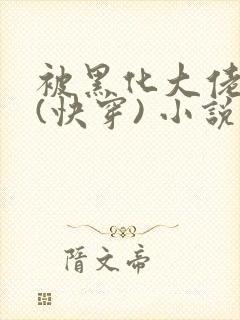 被黑化大佬
(快穿)小說
隋文帝